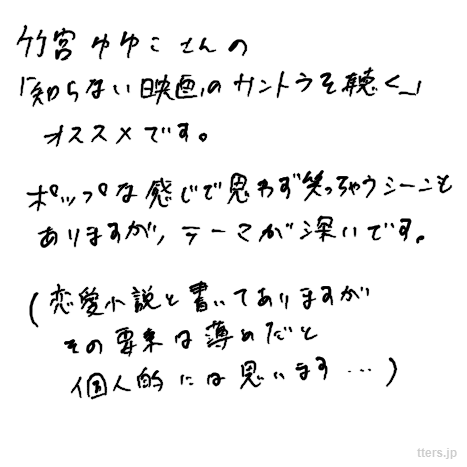 竹宮ゆゆこさんの
「知らない映画のサントラを聴く」
オススメです。
ポップな感じで思わず笑っちゃうシーンも
ありますが、テーマが深いです。
(恋愛小説と書いてありますが
その要素は薄めだと
個人的には思います…)
tters.jp